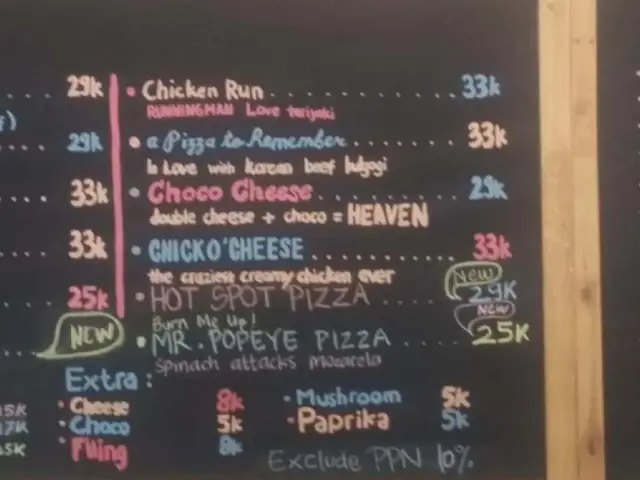 29k
• Chicken Run ............ 33k
RUNNINGMAN Love teriyaki
29k
• a Pizza to Remember ....... 33k
In Love with korean beef bulgogi
33k
• Choco Cheese ........... 29k
double cheese + choco = HEAVEN
33k
• CHICKO'CHEESE ........... 33k
the craziest creamy chicken ever
New
25k
• HOT SPOT PIZZA ..... 29K
Burn Me Up!
New
NEW
• MR. POPEYE PIZZA .... 25K
Spinach attacks mozarela
Extra :
• Cheese 8k
• Mushroom 5k
• Choco 5k
• Paprika 5k
• Filling 8k
Exclude PPN 10%